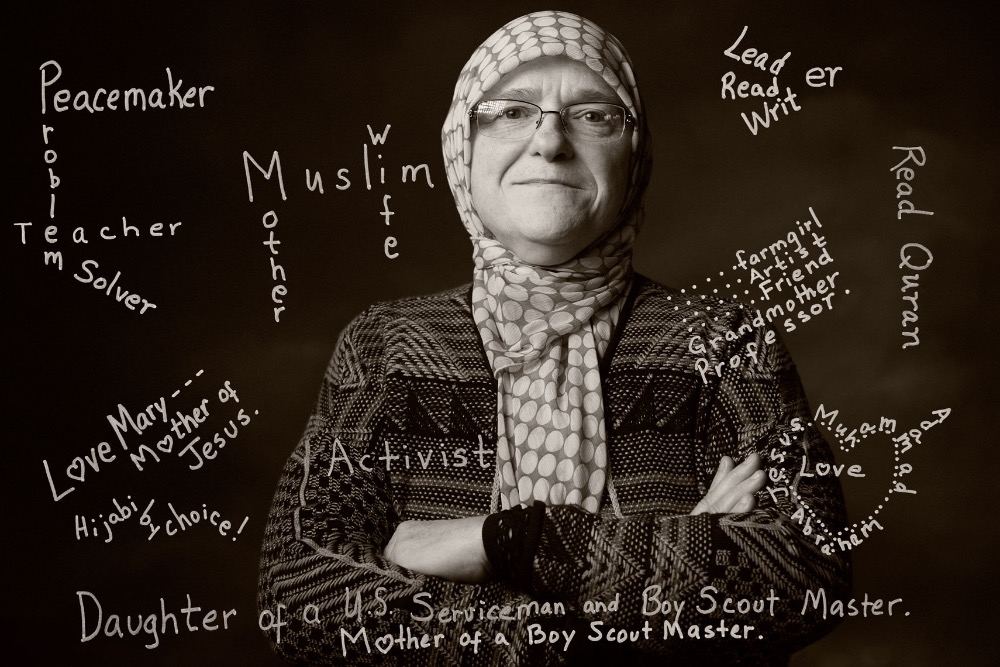 Peacemaker
Problem
Solver
Teacher
Muslim
Mother
Wife
Lead
Read er
Writ
Read Quran
farmgirl
Artist
Friend
Grandmother
Professor.
Love Mary---
Mother of
Jesus.
Hijabi by choice!
Activist
Jesus.
Muhammad
Adam
Love
Daughter of a U.S. Serviceman and Boy Scout Master.
Mother of a Boy Scout Master.